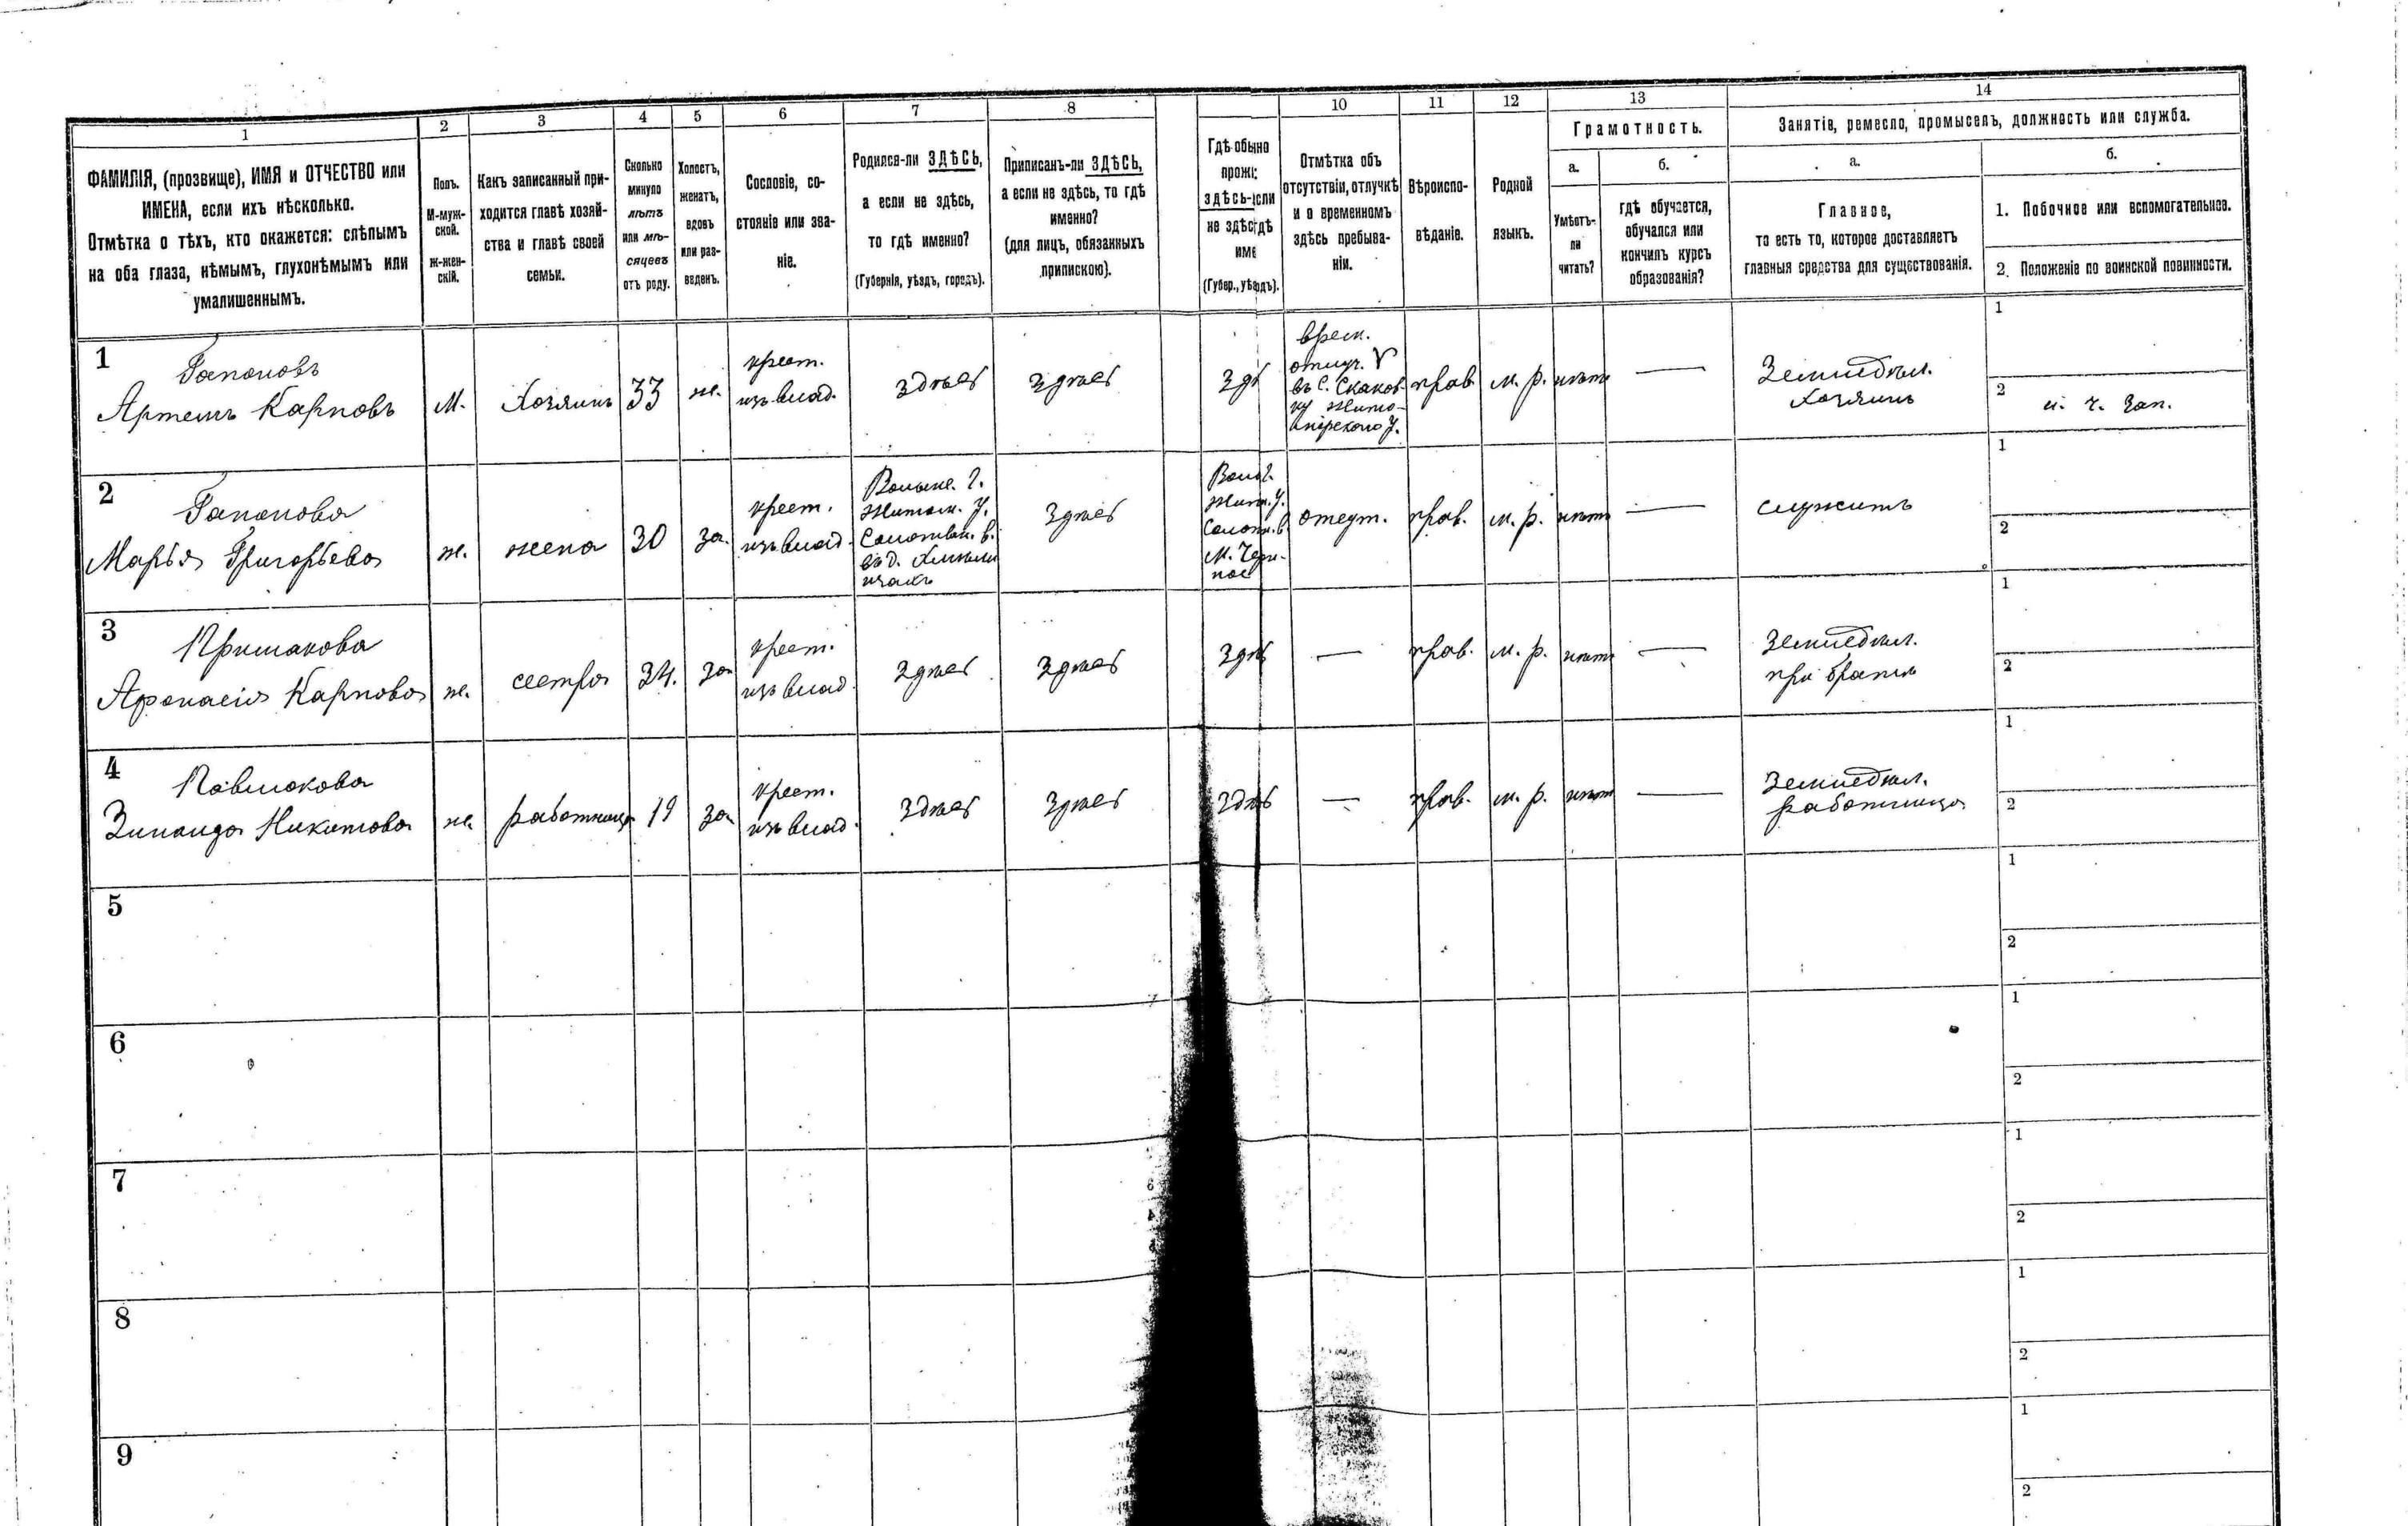 1 2 3 4 5 6 7 8 10 11 12 13 14
ФАМИЛІЯ, (прозвище), ИМЯ и ОТЧЕСТВО или
ИМЕНА, если ихъ нѣсколько.
Отмѣтка о тѣхъ, кто окажется: слѣпымъ
на оба глаза, нѣмымъ, глухонѣмымъ или
умалишеннымъ.
Полъ.
М-муж-
ской.
Ж-жен-
скій.
Какъ записанный при-
ходится главѣ хозяй-
ства и главѣ своей
семьи.
Сколько
минуло
лѣтъ
или мѣ-
сяцевъ
отъ роду.
Холостъ,
женатъ,
вдовъ
или раз-
веденъ.
Сословіе, со-
стояніе или зва-
ніе.
Родился-ли ЗДѢСЬ,
а если не здѣсь,
то гдѣ именно?
(Губернія, уѣздъ, городъ).
Приписанъ-ли ЗДѢСЬ,
а если не здѣсь, то гдѣ
именно?
(для лицъ, обязанныхъ
припискою).
Гдѣ обыно
прожі
здѣсь-если
не здѣсгдѣ
име
(Губер., уѣздъ).
Отмѣтка объ
отсутствіи, отлучкѣ
и о временномъ
здѣсь пребыва-
ніи.
Вѣроиспо-
вѣданіе.
Родной
языкъ.
Грамотность.
а.
Умѣетъ-
ли
читать?
б.
гдѣ обучается,
обучался или
кончилъ курсъ
образованія?
Занятіе, ремесло, промыселъ, должность или служба.
а.
Главное,
то есть то, которое доставляетъ
главныя средства для существованія.
б.
1. Побочное или вспомогательное.
2. Положеніе по воинской повинности.
1
Гапоновъ
Артемъ Карповъ
М.
Хозяинъ
33
же.
крест.
изъ влад.
здѣсь
здѣсь
зд
врем.
отлуч.
въ С. Скаков-
ку Жито-
мірскаго У.
прав.
м. р.
нѣтъ
—
Земледѣл.
хозяинъ
1
2
2
Гапонова
Марья Григорьева
ж.
жена
30
за.
крест.
изъ влад.
Волынс. Г.
Житом. У.
въ д.
здѣсь
Жит. У.
отсут.
прав.
м. р.
нѣтъ
—
служитъ
1
2
3
Примакова
Афанасія Карпова
ж.
сестра
34.
за
крест.
изъ влад.
здѣсь
здѣсь
здѣ
—
прав.
м. р.
нѣтъ
—
Земледѣл.
при братѣ
1
2
4
Павлюкова
Зинаида Никитова
ж.
работница
19
за
крест.
изъ влад.
здѣсь
здѣсь
здѣсь
—
прав.
м. р.
нѣтъ
—
Земледѣл.
работница
1
2
5
1
2
6
1
2
7
1
2
8
1
2
9
1
2